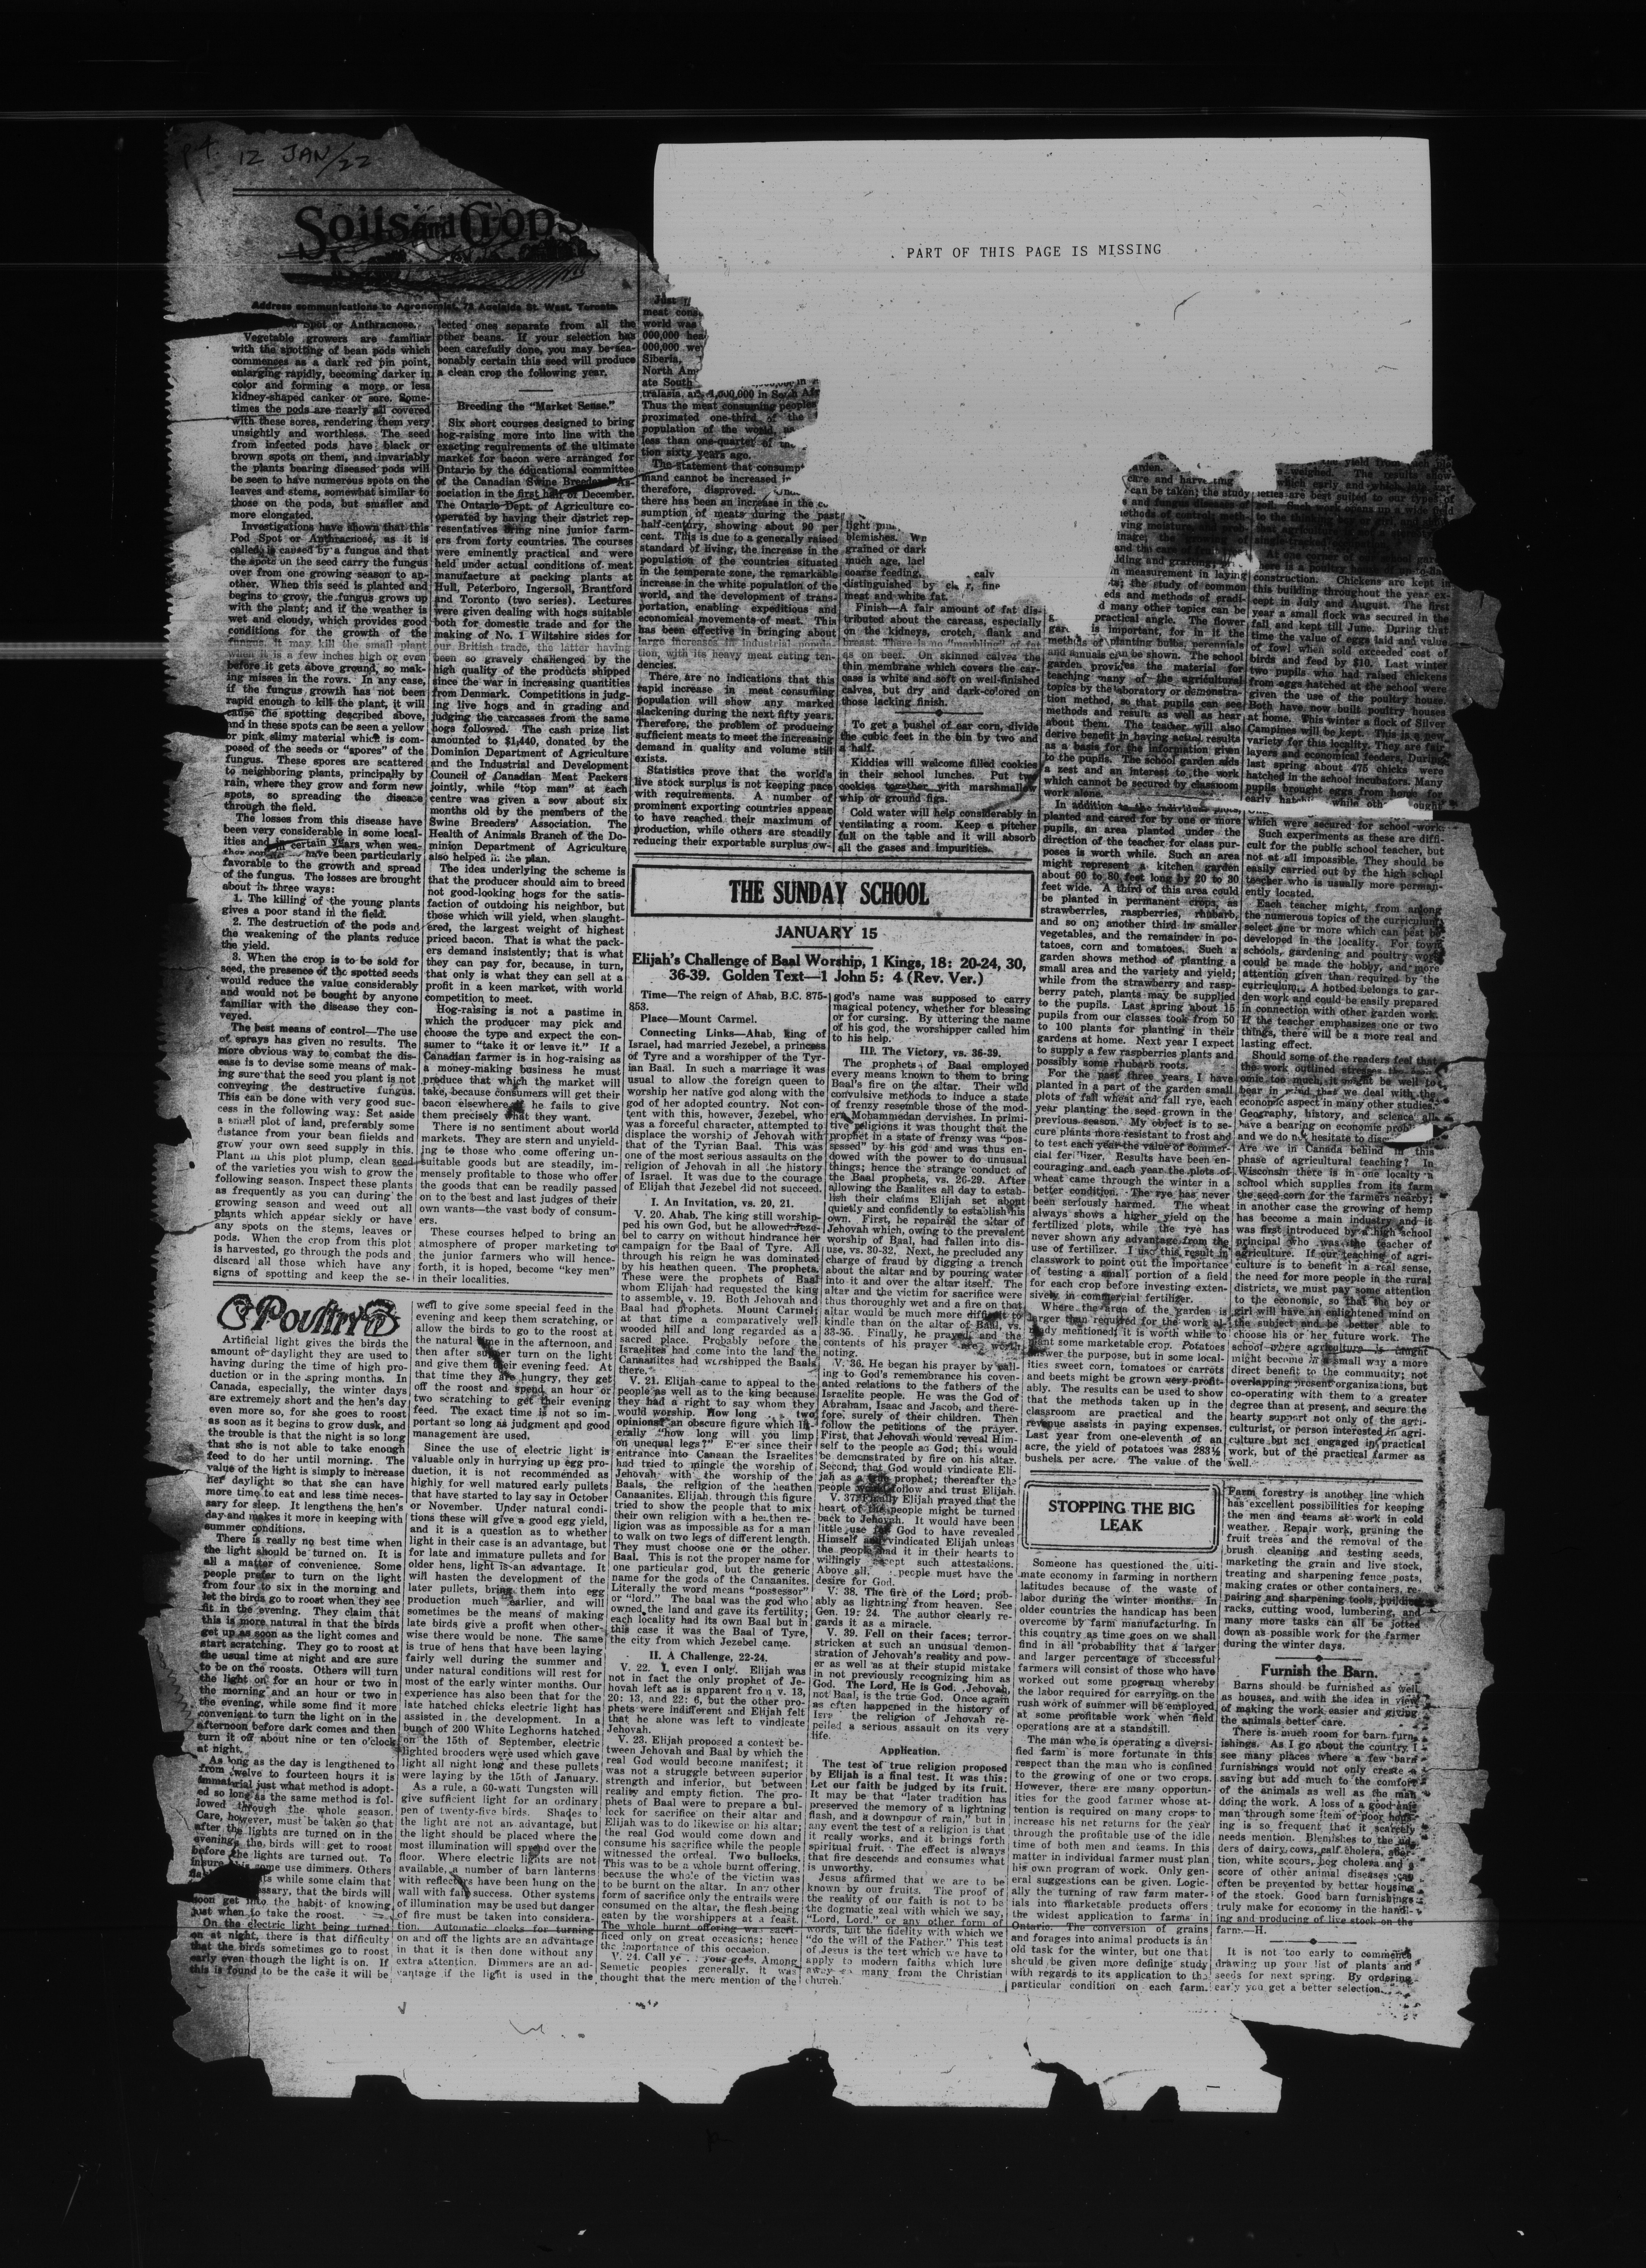 p4. 12 JAN/22
PART OF THIS PAGE IS MISSING
Soils and Crops
Address communications to Agronomist, 73 Adelaide St. West, Toronto
Spot or Anthracnose.
Vegetable growers are familiar
with the spotting of bean pods which
commences as a dark red pin point,
enlarging rapidly, becoming darker in
color and forming a more or less
kidney-shaped canker or sore. Some-
times the pods are nearly all covered
with these sores, rendering them very
unsightly and worthless. The seed
from infected pods have black or
brown spots on them, and invariably
the plants bearing diseased pods will
be seen to have numerous spots on the
leaves and stems, somewhat similar to
those on the pods, but smaller and
more elongated.
Investigations have shown that this
Pod Spot or Anthracnose, as it is
called, is caused by a fungus and that
the spots on the seed carry the fungus
over from one growing season to an-
other. When this seed is planted and
begins to grow, the fungus grows up
with the plant; and if the weather is
wet and cloudy, which provides good
conditions for the growth of the
fungus, it may kill the small plant
when it is a few inches high or even
before it gets above ground, so mak-
ing misses in the rows. In any case,
if the fungus growth has not been
rapid enough to kill the plant, it will
cause the spotting described above,
and in these spots can be seen a yellow
or pink slimy material which is com-
posed of the seeds or "spores" of the
fungus. These spores are scattered
to neighboring plants, principally by
rain, where they grow and form new
spots, so spreading the disease
through the field.
The losses from this disease have
been very considerable in some local-
ities and in certain years when wea-
have been particularly
favorable to the growth and spread
of the fungus. The losses are brought
about in three ways:
1. The killing of the young plants
gives a poor stand in the field.
2. The destruction of the pods and
the weakening of the plants reduce
the yield.
3. When the crop is to be sold for
seed, the presence of the spotted seeds
would reduce the value considerably
and would not be bought by anyone
familiar with the disease they con-
veyed.
The best means of control—The use
of sprays has given no results. The
more obvious way to combat the dis-
ease is to devise some means of mak-
ing sure that the seed you plant is not
conveying the destructive fungus.
This can be done with very good suc-
cess in the following way: Set aside
a small plot of land, preferably some
distance from your bean fiields and
grow your own seed supply in this.
Plant in this plot plump, clean seed
of the varieties you wish to grow the
following season. Inspect these plants
as frequently as you can during the
growing season and weed out all
plants which appear sickly or have
any spots on the stems, leaves or
pods. When the crop from this plot
is harvested, go through the pods and
discard all those which have any
signs of spotting and keep the se-
lected ones separate from all the
other beans. If your selection has
been carefully done, you may be rea-
sonably certain this seed will produce
a clean crop the following year.
Breeding the "Market Sense."
Six short courses designed to bring
hog-raising more into line with the
exacting requirements of the ultimate
market for bacon were arranged for
Ontario by the educational committee
of the Canadian Swine Breeders' As-
sociation in the first half of December.
The Ontario Dept. of Agriculture co-
operated by having their district rep-
resentatives bring nine junior farm-
ers from forty countries. The courses
were eminently practical and were
held under actual conditions of meat
manufacture at packing plants at
Hull, Peterboro, Ingersoll, Brantford
and Toronto (two series). Lectures
were given dealing with hogs suitable
both for domestic trade and for the
making of No. 1 Wiltshire sides for
our British trade, the latter having
been so gravely challenged by the
high quality of the products shipped
since the war in increasing quantities
from Denmark. Competitions in judg-
ing live hogs and in grading and
judging the carcasses from the same
hogs followed. The cash prize list
amounted to $1,440, donated by the
Dominion Department of Agriculture
and the Industrial and Development
Council of Canadian Meat Packers
jointly, while "top man" at each
centre was given a sow about six
months old by the members of the
Swine Breeders' Association. The
Health of Animals Branch of the Do-
minion Department of Agriculture
also helped in the plan.
The idea underlying the scheme is
that the producer should aim to breed
not good-looking hogs for the satis-
faction of outdoing his neighbor, but
those which will yield, when slaught-
ered, the largest weight of highest
priced bacon. That is what the pack-
ers demand insistently; that is what
they can pay for, because, in turn,
that only is what they can sell at a
profit in a keen market, with world
competition to meet.
Hog-raising is not a pastime in
which the producer may pick and
choose the type and expect the con-
sumer to "take it or leave it." If a
Canadian farmer is in hog-raising as
a money-making business he must
produce that which the market will
take, because consumers will get their
bacon elsewhere if he fails to give
them precisely what they want.
There is no sentiment about world
markets. They are stern and unyield-
ing to those who come offering un-
suitable goods but are steadily, im-
mensely profitable to those who offer
the goods that can be readily passed
on to the best and last judges of their
own wants—the vast body of consum-
ers.
These courses helped to bring an
atmosphere of proper marketing to
the junior farmers who will hence-
forth, it is hoped, become "key men"
in their localities.
Poultry
Artificial light gives the birds the
amount of daylight they are used to
having during the time of high pro-
duction or in the spring months. In
Canada, especially, the winter days
are extremely short and the hen's day
even more so, for she goes to roost
as soon as it begins to grow dusk, and
the trouble is that the night is so long
that she is not able to take enough
feed to do her until morning. The
value of the light is simply to increase
her daylight so that she can have
more time to eat and less time neces-
sary for sleep. It lengthens the hen's
day and makes it more in keeping with
summer conditions.
There is really no best time when
the light should be turned on. It is
all a matter of convenience. Some
people prefer to turn on the light
from four to six in the morning and
let the birds go to roost when they see
fit in the evening. They claim that
this is more natural in that the birds
get up as soon as the light comes and
start scratching. They go to roost at
the usual time at night and are sure
to be on the roosts. Others will turn
the light on for an hour or two in
the morning and an hour or two in
the evening, while some find it more
convenient to turn the light on in the
afternoon before dark comes and then
turn it off about nine or ten o'clock
at night.
As long as the day is lengthened to
from twelve to fourteen hours it is
immaterial just what method is adopt-
ed so long as the same method is fol-
lowed through the whole season.
Care, however, must be taken so that
after the lights are turned on in the
evenings the birds will get to roost
before the lights are turned out. To
insure this some use dimmers. Others
while some claim that
the birds will
soon get into the habit of knowing
just when to take the roost.
On the electric light being turned
on at night, there is that difficulty
that the birds sometimes go to roost
early even though the light is on. If
this is found to be the case it will be
well to give some special feed in the
evening and keep them scratching, or
allow the birds to go to the roost at
the natural time in the afternoon, and
then after supper turn on the light
and give them their evening feed. At
that time they are hungry, they get
off the roost and spend an hour or
two scratching to get their evening
feed. The exact time is not so im-
portant so long as judgment and good
management are used.
Since the use of electric light is
valuable only in hurrying up egg pro-
duction, it is not recommended as
highly for well matured early pullets
that have started to lay say in October
or November. Under natural condi-
tions these will give a good egg yield,
and it is a question as to whether
light in their case is an advantage, but
for late and immature pullets and for
older hens, light is an advantage. It
will hasten the development of the
later pullets, bring them into egg
production much earlier, and will
sometimes be the means of making
late birds give a profit when other-
wise there would be none. The same
is true of hens that have been laying
fairly well during the summer and
under natural conditions will rest for
most of the early winter months. Our
experience has also been that for the
late hatched chicks electric light has
assisted in the development. In a
bunch of 200 White Leghorns hatched
on the 15th of September, electric
lighted brooders were used which gave
light all night long and these pullets
were laying by the 15th of January.
As a rule, a 60-watt Tungsten will
give sufficient light for an ordinary
pen of twenty-five birds. Shades to
the light are not an advantage, but
the light should be placed where the
most illumination will spread over the
floor. Where electric lights are not
available, a number of barn lanterns
with reflectors have been hung on the
wall with fair success. Other systems
of illumination may be used but danger
of fire must be taken into considera-
tion. Automatic clocks for turning
on and off the lights are an advantage
in that it is then done without any
extra attention. Dimmers are an ad-
vantage if the light is used in the
Just
meat cons
world was
000,000 hea
000,000 we
Siberia,
North Am
ate South
tralasia, and 1,000,000 in South Afr
Thus the meat consuming peoples
proximated one-third of the
population of the world,
less than one-quarter of
tion sixty years ago.
The statement that consump
mand cannot be increased
therefore, disproved.
there has been an increase in the c
sumption of meats during the past
half-century, showing about 90 per
cent. This is due to a generally raised
standard of living, the increase in the
population of the countries situated
in the temperate zone, the remarkable
increase in the white population of the
world, and the development of trans-
portation, enabling expeditious and
economical movements of meat. This
has been effective in bringing about
large increases in industrial popula-
tion, with its heavy meat eating ten-
dencies.
There are no indications that this
rapid increase in meat consuming
population will show any marked
slackening during the next fifty years.
Therefore, the problem of producing
sufficient meats to meet the increasing
demand in quality and volume still
exists.
Statistics prove that the world's
live stock surplus is not keeping pace
with requirements. A number of
prominent exporting countries appear
to have reached their maximum of
production, while others are steadily
reducing their exportable surplus ow-
light
blemishes.
grained or dark
much age, lac
coarse feeding. calv
distinguished by fine
meat and white fat.
Finish—A fair amount of fat dis-
tributed about the carcass, especially
on the kidneys, crotch, flank and
breast. There is no "marbling" of fat
as on beef. On skinned calves the
thin membrane which covers the car-
cass is white and soft on well-finished
calves, but dry and dark-colored on
those lacking finish.
To get a bushel of ear corn, divide
the cubic feet in the bin by two and
a half.
Kiddies will welcome filled cookies
in their school lunches. Put two
cookies together with marshmallow
whip or ground figs.
Cold water will help considerably in
ventilating a room. Keep a pitcher
full on the table and it will absorb
all the gases and impurities.
THE SUNDAY SCHOOL
JANUARY 15
Elijah's Challenge of Baal Worship, 1 Kings, 18: 20-24, 30,
36-39. Golden Text—1 John 5: 4 (Rev. Ver.)
Time—The reign of Ahab, B.C. 875-
853.
Place—Mount Carmel.
Connecting Links—Ahab, king of
Israel, had married Jezebel, a princess
of Tyre and a worshipper of the Tyr-
ian Baal. In such a marriage it was
usual to allow the foreign queen to
worship her native god along with the
god of her adopted country. Not con-
tent with this, however, Jezebel, who
was a forceful character, attempted to
displace the worship of Jehovah with
that of the Tyrian Baal. This was
one of the most serious assaults on the
religion of Jehovah in all the history
of Israel. It was due to the courage
of Elijah that Jezebel did not succeed.
I. An Invitation, vs. 20, 21.
V. 20. Ahab. The king still worship-
ped his own God, but he allowed Jeze-
bel to carry on without hindrance her
campaign for the Baal of Tyre. All
through his reign he was dominated
by his heathen queen. The prophets.
These were the prophets of Baal
whom Elijah had requested the king
to assemble, v. 19. Both Jehovah and
Baal had prophets. Mount Carmel;
at that time a comparatively well
wooded hill and long regarded as a
sacred place. Probably before the
Israelites had come into the land the
Canaanites had worshipped the Baals
there.
V. 21. Elijah came to appeal to the
people as well as to the king because
they had a right to say whom they
would worship. How long two
opinions? an obscure figure which lit-
erally "how long will you limp
on unequal legs?" Ever since their
entrance into Canaan the Israelites
had tried to mingle the worship of
Jehovah with the worship of the
Baals, the religion of the heathen
Canaanites. Elijah, through this figure
tried to show the people that to mix
their own religion with a heathen re-
ligion was as impossible as for a man
to walk on two legs of different length.
They must choose one or the other.
Baal. This is not the proper name for
one particular god, but the generic
name for the gods of the Canaanites.
Literally the word means "possessor"
or "lord." The baal was the god who
owned the land and gave its fertility;
each locality had its own Baal but in
this case it was the Baal of Tyre,
the city from which Jezebel came.
II. A Challenge, 22-24.
V. 22. I, even I only. Elijah was
not in fact the only prophet of Je-
hovah left as is apparent from v. 13,
20: 13, and 22: 6, but the other pro-
phets were indifferent and Elijah felt
that he alone was left to vindicate
Jehovah.
V. 23. Elijah proposed a contest be-
tween Jehovah and Baal by which the
real God would become manifest; it
was not a struggle between superior
strength and inferior, but between
reality and empty fiction. The pro-
phets of Baal were to prepare a bul-
lock for sacrifice on their altar and
Elijah was to do likewise on his altar;
the real God would come down and
consume his sacrifice while the people
witnessed the ordeal. Two bullocks.
This was to be a whole burnt offering,
because the whole of the victim was
to be burnt on the altar. In any other
form of sacrifice only the entrails were
consumed on the altar, the flesh being
eaten by the worshippers at a feast.
The whole burnt offering was sacri-
ficed only on great occasions; hence
the importance of this occasion.
V. 24. Call ye your gods. Among
Semetic peoples generally, it was
thought that the mere mention of the
god's name was supposed to carry
magical potency, whether for blessing
or for cursing. By uttering the name
of his god, the worshipper called him
to his help.
III. The Victory, vs. 36-39.
The prophets of Baal employed
every means known to them to bring
Baal's fire on the altar. Their wild
convulsive methods to induce a state
of frenzy resemble those of the mod-
ern Mohammedan dervishes. In primi-
tive religions it was thought that the
prophet in a state of frenzy was "pos-
sessed" by his god and was thus en-
dowed with the power to do unusual
things; hence the strange conduct of
the Baal prophets, vs. 26-29. After
allowing the Baalites all day to estab-
lish their claims Elijah set about
quietly and confidently to establish his
own. First, he repaired the altar of
Jehovah which, owing to the prevalent
worship of Baal, had fallen into dis-
use, vs. 30-32. Next, he precluded any
charge of fraud by digging a trench
about the altar and by pouring water
into it and over the altar itself. The
altar and the victim for sacrifice were
thus thoroughly wet and a fire on that
altar would be much more difficult to
kindle than on the altar of Baal, vs.
33-35. Finally, he prayed and the
contents of his prayer are worth
noting.
V. 36. He began his prayer by call-
ing to God's remembrance his coven-
anted relations to the fathers of the
Israelite people. He was the God of
Abraham, Isaac and Jacob, and there-
fore, surely of their children. Then
follow the petitions of the prayer.
First, that Jehovah would reveal Him-
self to the people as God; this would
be demonstrated by fire on his altar.
Second, that God would vindicate Eli-
jah as a true prophet; thereafter the
people would follow and trust Elijah.
V. 37. Finally Elijah prayed that the
heart of the people might be turned
back to Jehovah. It would have been
little use for God to have revealed
Himself and vindicated Elijah unless
the people had it in their hearts to
willingly accept such attestations.
Above all, people must have the
desire for God.
V. 38. The fire of the Lord; prob-
ably as lightning from heaven. See
Gen. 19: 24. The author clearly re-
gards it as a miracle.
V. 39. Fell on their faces; terror-
stricken at such an unusual demon-
stration of Jehovah's reality and pow-
er as well as at their stupid mistake
in not previously recognizing him as
God. The Lord, He is God. Jehovah,
not Baal, is the true God. Once again
as often happened in the history of
the religion of Jehovah re-
pelled a serious assault on its very
life.
Application.
The test of true religion proposed
by Elijah is a final test. It was this:
Let our faith be judged by its fruit.
It may be that "later tradition has
preserved the memory of a lightning
flash, and a downpour of rain," but in
any event the test of a religion is that
it really works, and it brings forth
spiritual fruit. The effect is always
that fire descends and consumes what
is unworthy.
Jesus affirmed that we are to be
known by our fruits. The proof of
the reality of our faith is not to be
the dogmatic zeal with which we say,
"Lord, Lord," or any other form of
words, but the fidelity with which we
"do the will of the Father." This test
of Jesus is the test which we have to
apply to modern faiths which lure
away many from the Christian
church.
arden.
care and harvesting
can be taken; the study
s and fungus diseases
ethods of control; meth-
ving moisture
inage;
and the care of
dding and grafting;
in measurement in laying
ts; the study of common
eds and methods of eradi-
d many other topics can be
practical angle. The flower
gar is important, for in it the
methods of planting bulbs, perennials
and annuals can be shown. The school
garden provides the material for
teaching many of the agricultural
topics by the laboratory or demonstra-
tion method, so that pupils can see
methods and results as well as hear
about them. The teacher will also
derive benefit in having actual results
as a basis for the information given
to the pupils. The school garden aids
a zest and an interest to the work
which cannot be secured by classroom
work alone.
In addition to the individual
planted and cared for by one or more
pupils, an area planted under the
direction of the teacher for class pur-
poses is worth while. Such an area
might represent a kitchen garden
about 60 to 80 feet long by 20 to 30
feet wide. A third of this area could
be planted in permanent crops, as
strawberries, raspberries, rhubarb,
and so on; another third in smaller
vegetables, and the remainder in po-
tatoes, corn and tomatoes. Such a
garden shows method of planting a
small area and the variety and yield;
while from the strawberry and rasp-
berry patch, plants may be supplied
to the pupils. Last spring about 15
pupils from our classes took from 50
to 100 plants for planting in their
gardens at home. Next year I expect
to supply a few raspberries plants and
possibly some rhubarb roots.
For the past three years I have
planted in a part of the garden small
plots of fall wheat and fall rye, each
year planting the seed grown in the
previous season. My object is to se-
cure plants more resistant to frost and
to test each year the value of commer-
cial fertilizer. Results have been en-
couraging and each year the plots of
wheat came through the winter in a
better condition. The rye has never
been seriously harmed. The wheat
always shows a higher yield on the
fertilized plots, while the rye has
never shown any advantage from the
use of fertilizer. I use this result in
classwork to point out the importance
of testing a small portion of a field
for each crop before investing exten-
sively in commercial fertilizer.
Where the area of the garden is
larger than required for the work al-
ready mentioned, it is worth while to
plant some marketable crop. Potatoes
answer the purpose, but in some local-
ities sweet corn, tomatoes or carrots
and beets might be grown very profit-
ably. The results can be used to show
that the methods taken up in the
classroom are practical and the
revenue assists in paying expenses.
Last year from one-eleventh of an
acre, the yield of potatoes was 283½
bushels per acre. The value of the
the yield from each plot
weighed. The results show
which early and
ieties are best suited to our types of
soil. Such work opens up a wide field
At one corner of
here is a poultry house of up-to-date
construction. Chickens are kept in
this building throughout the year ex-
cept in July and August. The first
year a small flock was secured in the
fall, and kept till June. During that
time the value of eggs laid and value
of fowl when sold exceeded cost of
birds and feed by $10. Last winter
two pupils who had raised chickens
from eggs hatched at the school were
given the use of the poultry house.
Both have now built poultry houses
at home. This winter a flock of Silver
Campines will be kept. This is a new
variety for this locality. They are fair
layers and economical feeders. During
last spring about 475 chicks were
hatched in the school incubators. Many
pupils brought eggs from home for
early hatch while oth ought
which were secured for school work.
Such experiments as these are diffi-
cult for the public school teacher, but
not at all impossible. They should be
easily carried out by the high school
teacher who is usually more perman-
ently located.
Each teacher might, from among
the numerous topics of the curriculum,
select one or more which can best be
developed in the locality. For town
schools, gardening and poultry work
could be made the hobby, and more
attention given than required by the
curriculum. A hotbed belongs to gar-
den work and could be easily prepared
in connection with other garden work.
If the teacher emphasizes one or two
things, there will be a more real and
lasting effect.
Should some of the readers feel that
the work outlined stresses the econ-
omic too much, it might be well to
bear in mind that we deal with the
economic aspect in many other studies.
Geography, history, and science all
have a bearing on economic prob
and we do not hesitate to disc
Are we in Canada behind in this
phase of agricultural teaching? In
Wisconsin there is in one locality a
school which supplies from its farm
the seed corn for the farmers nearby;
in another case the growing of hemp
has become a main industry and it
was first introduced by a high school
principal who was the teacher of
agriculture. If our teaching of agri-
culture is to benefit in a real sense,
the need for more people in the rural
districts, we must pay some attention
to the economic, so that the boy or
girl will have an enlightened mind on
the subject and be better able to
choose his or her future work. The
school where agriculture is taught
might become in a small way a more
direct benefit to the community; not
overlapping present organizations, but
co-operating with them to a greater
degree than at present, and secure the
hearty support not only of the agri-
culturist, or person interested in agri-
culture but not engaged in practical
work, but of the practical farmer as
well.
STOPPING THE BIG
LEAK
Someone has questioned the ulti-
mate economy in farming in northern
latitudes because of the waste of
labor during the winter months. In
older countries the handicap has been
overcome by farm manufacturing. In
this country as time goes on we shall
find in all probability that a larger
and larger percentage of successful
farmers will consist of those who have
worked out some program whereby
the labor required for carrying on the
rush work of summer will be employed
at some profitable work when field
operations are at a standstill.
The man who is operating a diversi-
fied farm is more fortunate in this
respect than the man who is confined
to the growing of one or two crops.
However, there are many opportun-
ities for the good farmer whose at-
tention is required on many crops to
increase his net returns for the year
through the profitable use of the idle
time of both men and teams. In this
matter in individual farmer must plan
his own program of work. Only gen-
eral suggestions can be given. Logic-
ally the turning of raw farm mater-
ials into marketable products offers
the widest application to farms in
Ontario. The conversion of grains
and forages into animal products is an
old task for the winter, but one that
should be given more definite study
with regards to its application to the
particular condition on each farm.
Farm forestry is another line which
has excellent possibilities for keeping
the men and teams at work in cold
weather. Repair work, pruning the
fruit trees and the removal of the
brush, cleaning and testing seeds,
marketing the grain and live stock,
treating and sharpening fence posts,
making crates or other containers, re-
pairing and sharpening tools, building
racks, cutting wood, lumbering, and
many more tasks can all be jotted
down as possible work for the farmer
during the winter days.
Furnish the Barn.
Barns should be furnished as well
as houses, and with the idea in view
of making the work easier and giving
the animals better care.
There is much room for barn furn-
ishings. As I go about the country I
see many places where a few barn
furnishings would not only create a
saving but add much to the comfort
of the animals as well as the man
doing the work. A loss of a good ani-
man through some item of poor hous-
ing is so frequent that it scarcely
needs mention. Blemishes to the ud-
ders of dairy cows, calf cholera, abor-
tion, white scours, hog cholera and a
score of other animal diseases can
often be prevented by better housing
of the stock. Good barn furnishings
truly make for economy in the handl-
ing and producing of live stock on the
farm.—H.
It is not too early to commence
drawing up your list of plants and
seeds for next spring. By ordering
early you get a better selection.